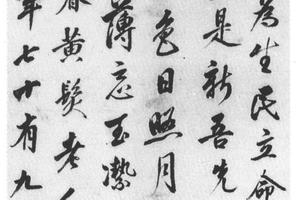 為生民立命
是新吾先
色日照月
薄忘玉潔
黃髮老
年七十有九